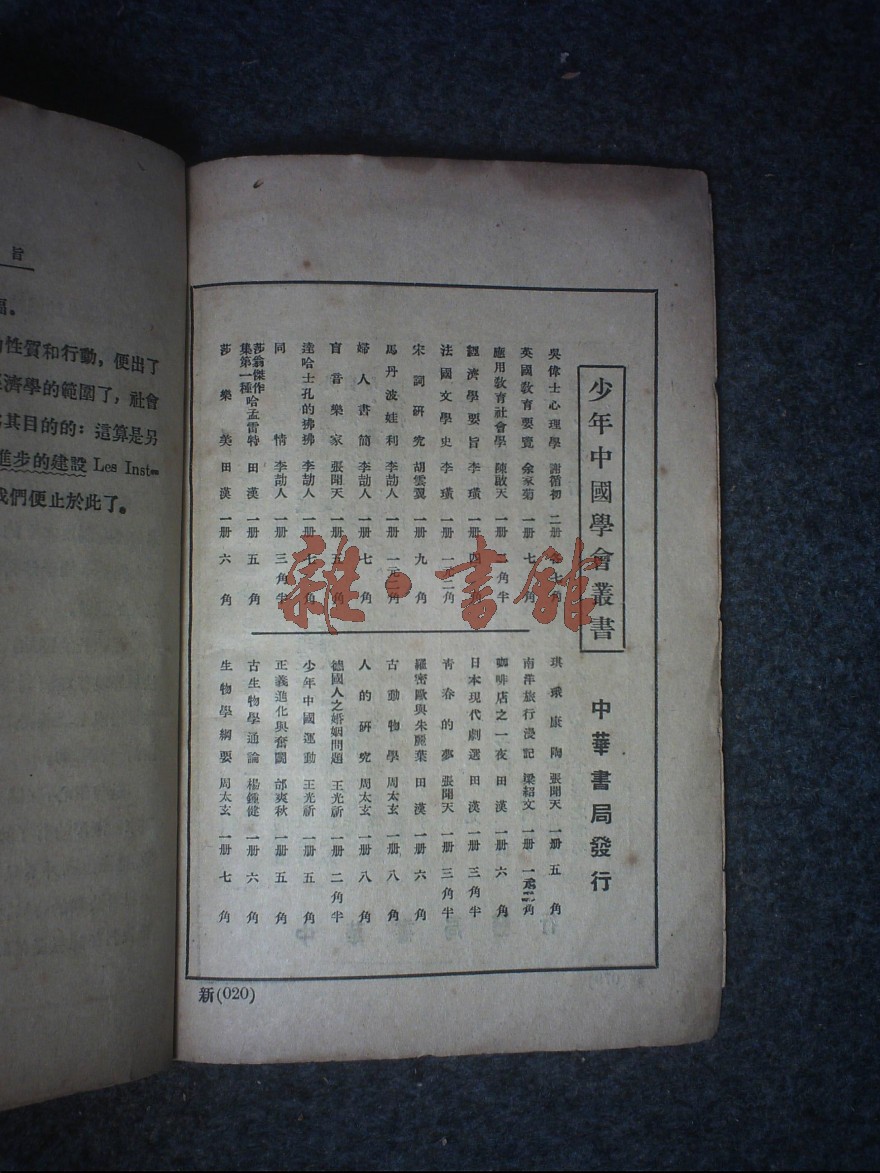 少年中國學會叢書
中華書局發行
吳偉士心理學 謝循初 二册 各七角
英國教育要覽 余家菊 一册 七角
應用教育社會學 陳啟天 一册 角半
經濟學要旨 李璜 一册 四
法國文學史 李璜 一册 一元二角
宋詞研究 胡雲翼 一册 九角
馬丹波娃利 李劼人 一册 一元二角
婦人書簡 李劼人 一册 七角
盲音樂家 張聞天 一册 五角
達哈士孔的狒狒 李劼人 一册 七角
同情 李劼人 一册 三角半
莎翁傑作集第一種 哈孟雷特 田漢 一册 五角
莎樂美 田漢 一册 六角
琪珴康陶 張聞天 一册 五角
南洋旅行漫記 梁紹文 一册 一元二角
咖啡店之一夜 田漢 一册 六角
日本現代劇選 田漢 一册 三角半
青春的夢 張聞天 一册 三角半
羅密歐與朱麗葉 田漢 一册 六角
古動物學 周太玄 一册 八角
人的研究 周太玄 一册 八角
德國人之婚姻問題 王光祈 一册 二角半
少年中國運動 王光祈 一册 五角
正義進化與奮鬭 邰爽秋 一册 五角
古生物學通論 楊鍾健 一册 六角
生物學綱要 周太玄 一册 七角
新(020)
雜·書館
旨
福。
性質和行動，便出了
濟學的範圍了，社會
其目的的：這算是另
進步的建設 Les Inst-
我們便止於此了。